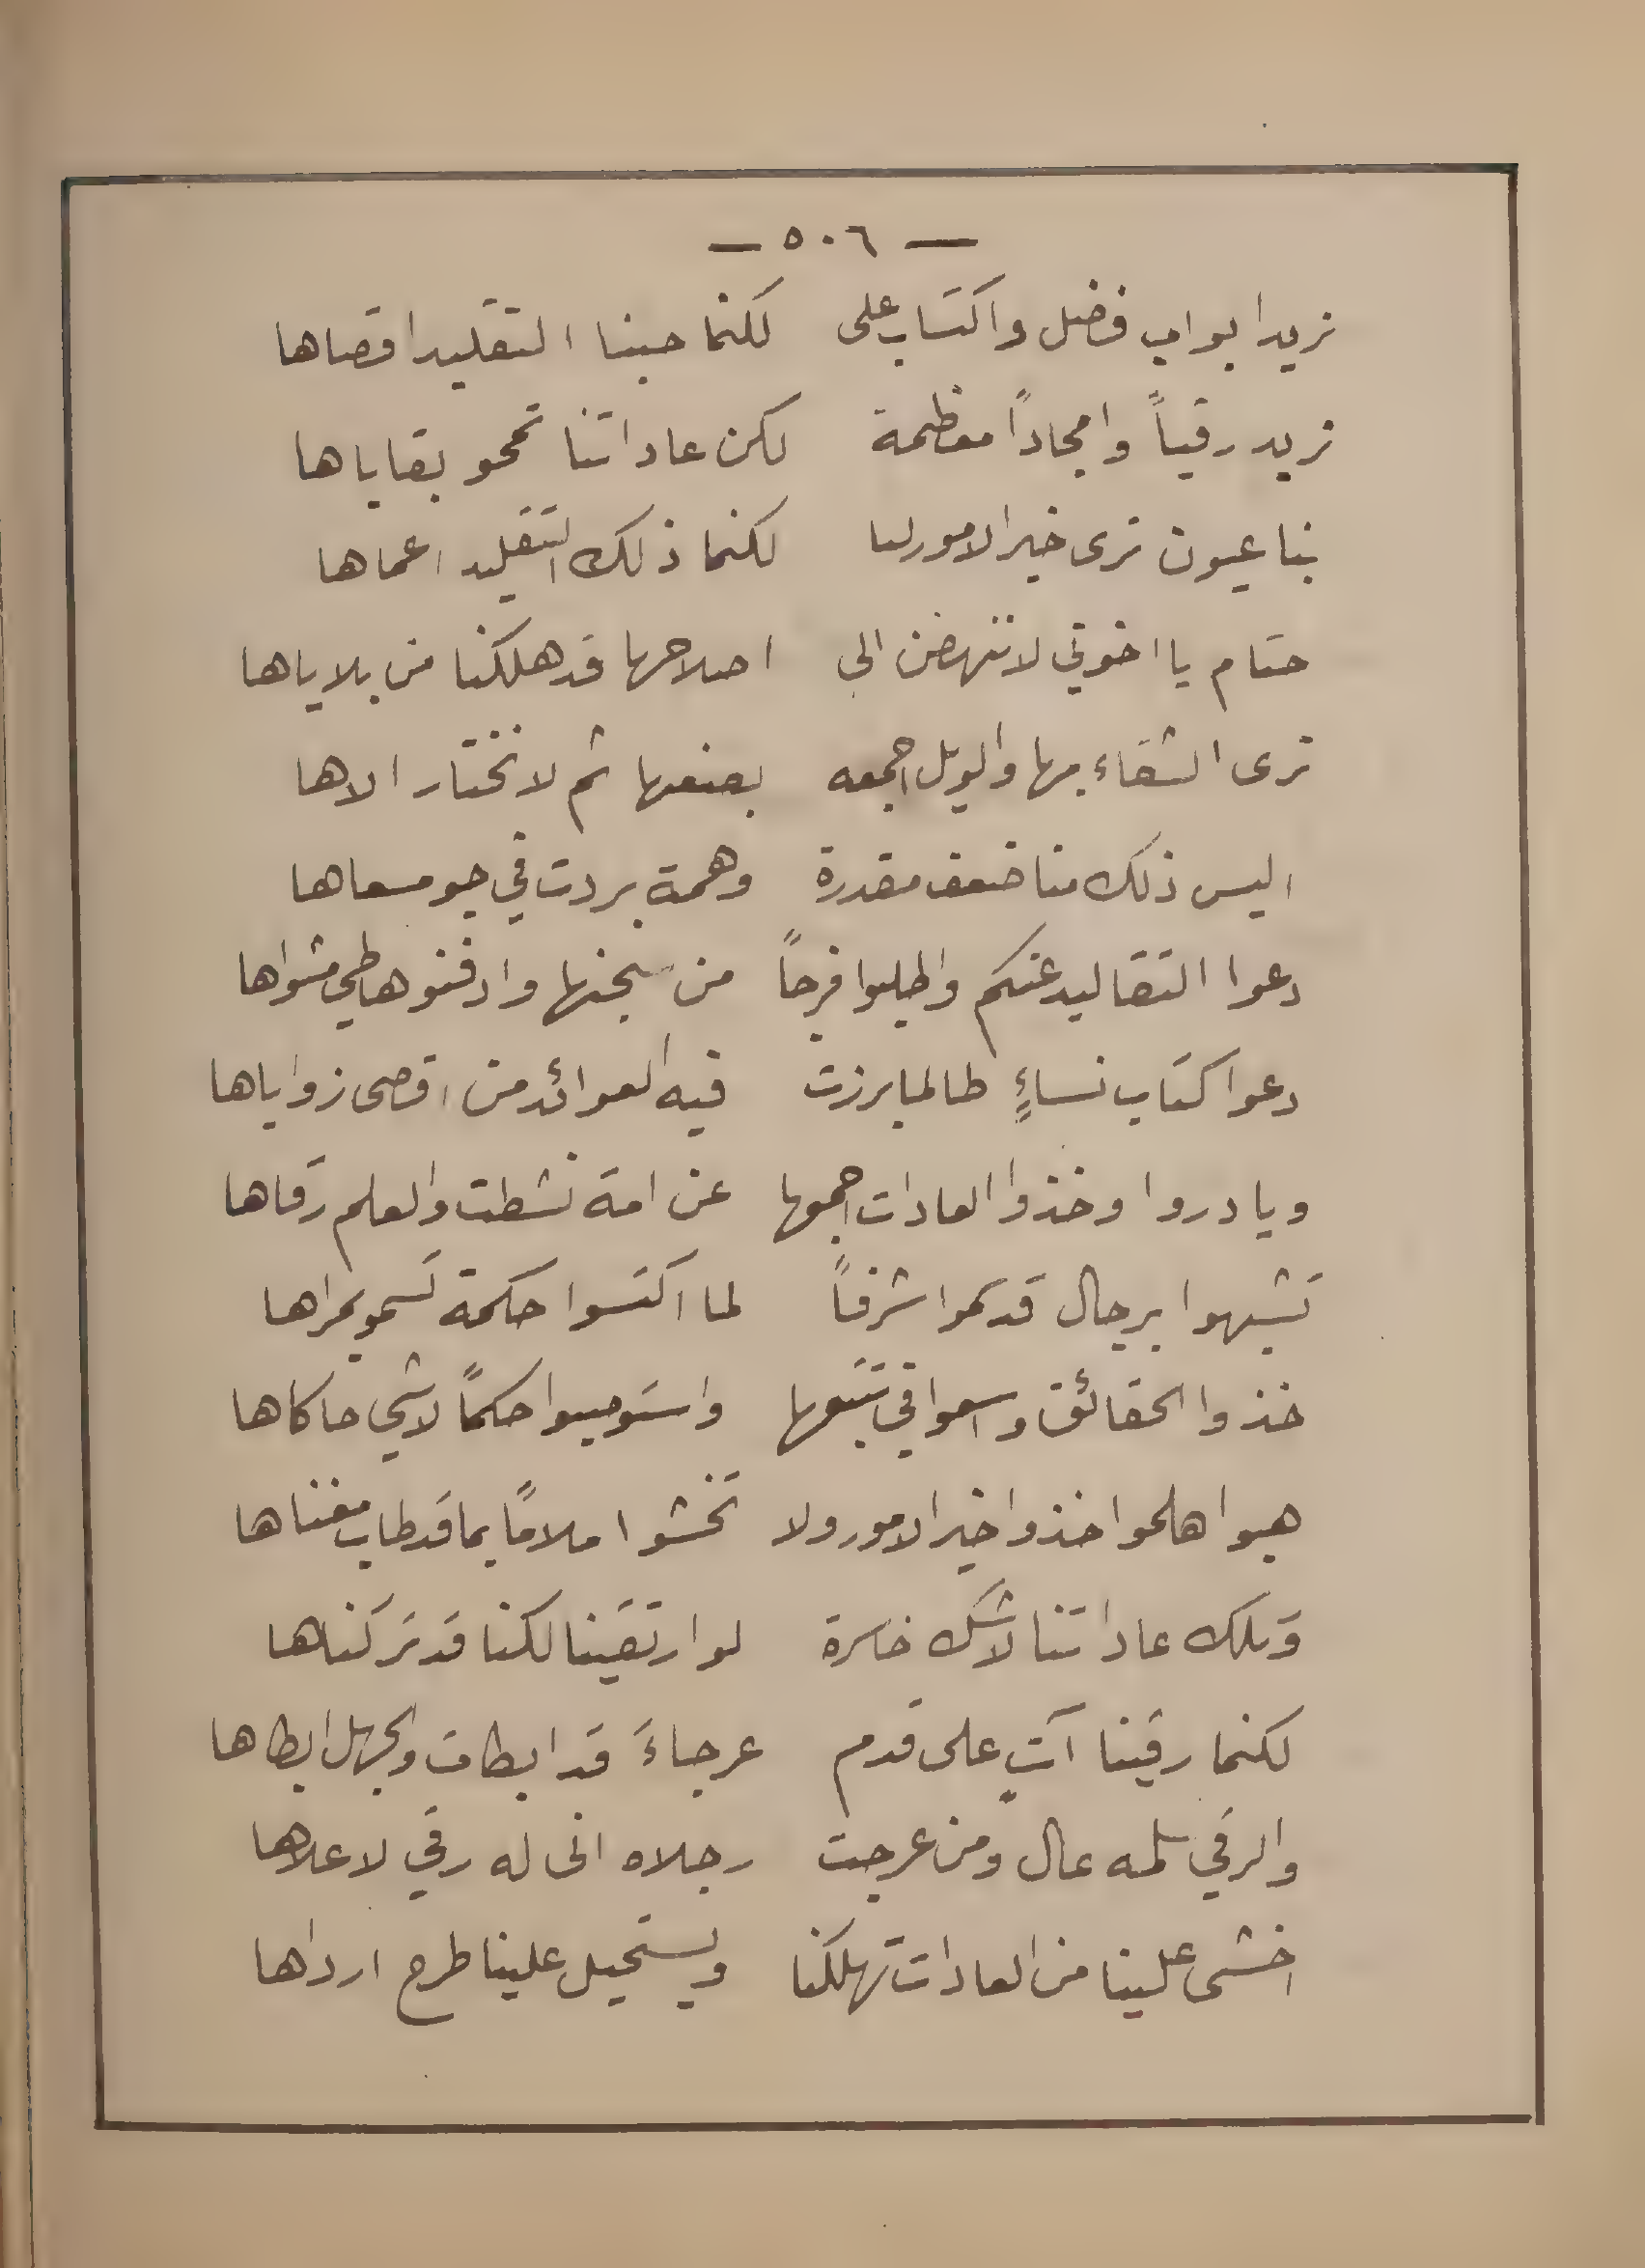 — ٥٠٦ —
نريد ابواب فضل واكتساب على لكنما حبنا التقليد اقصاها
نريد رقياً وامجاداً معظمة لكن عاداتنا تمحو بقاياها
بنا عيون ترى خير الامور لنا لكنما ذلك التقليد اعماها
حتام يا اخوتي لا ننهضن الى اصلاحها قد هلكنا من بلاياها
نرى الشقاء بها والويل اجمعه بصنعها ثم لا نختار الاها
اليس ذلك منا ضعف مقدرة وهمة بردت في جو مسعاها
دعوا التقاليد عنكم واطلبوا فرجاً من سجنها وادفنوها طي مثواها
دعوا كتاب نساءٍ طالما برزت فيه العوائد من اقصى زواياها
وبادروا وخذوا العادات اجمعها عن امة نشطت والعلم رقاها
تشبهوا برجال قد سموا شرفاً لما اكتسوا حكمة تسمو بمراها
خذوا الحقائق واسعوا في تتبعها واستوجبوا حكماً لا شي حاكاها
هبوا هلموا خذوا خير الامور ولا تخشوا ملاماً بما قد طاب مغناها
وتلك عاداتنا لا شك خاسرة لو ارتقينا لكنا قد تركناها
لكنما رقينا آتٍ على قدم عرجاءَ قد ابطات والجهل ابطاها
والرقي سلمه عال ومن عرجت رجلاه انى له رقي لاعلاها
اخشى علينا من العادات تهلكنا ويستحيل علينا طرح ارداها